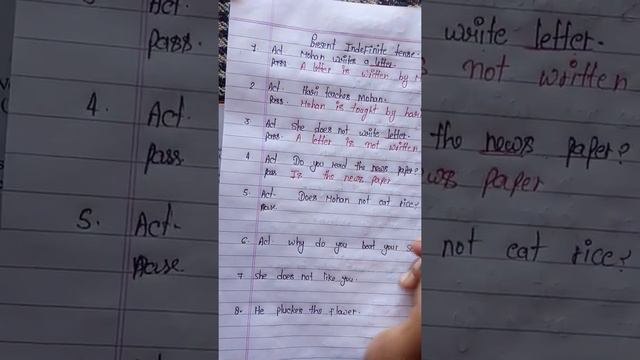 Present Indefinite tense.
1 Act Mohan writes a letter.
pass. A letter is written by
2 Act. Hari teaches Mohan.
pass. Mohan is tought by hari
3 Act She does not write letter.
pass. A letter is not written
4 Act Do you read the news paper?
pass Is the news paper
5. Act. Does Mohan not eat rice?
pase.
6. Act. why do you beat your
7 She does not like you.
8. He pluckes the flower.
Act.
pass.
4. Act
pass
5. Act.
pase.
write letter.
not written
the news paper?
news paper
not eat rice?